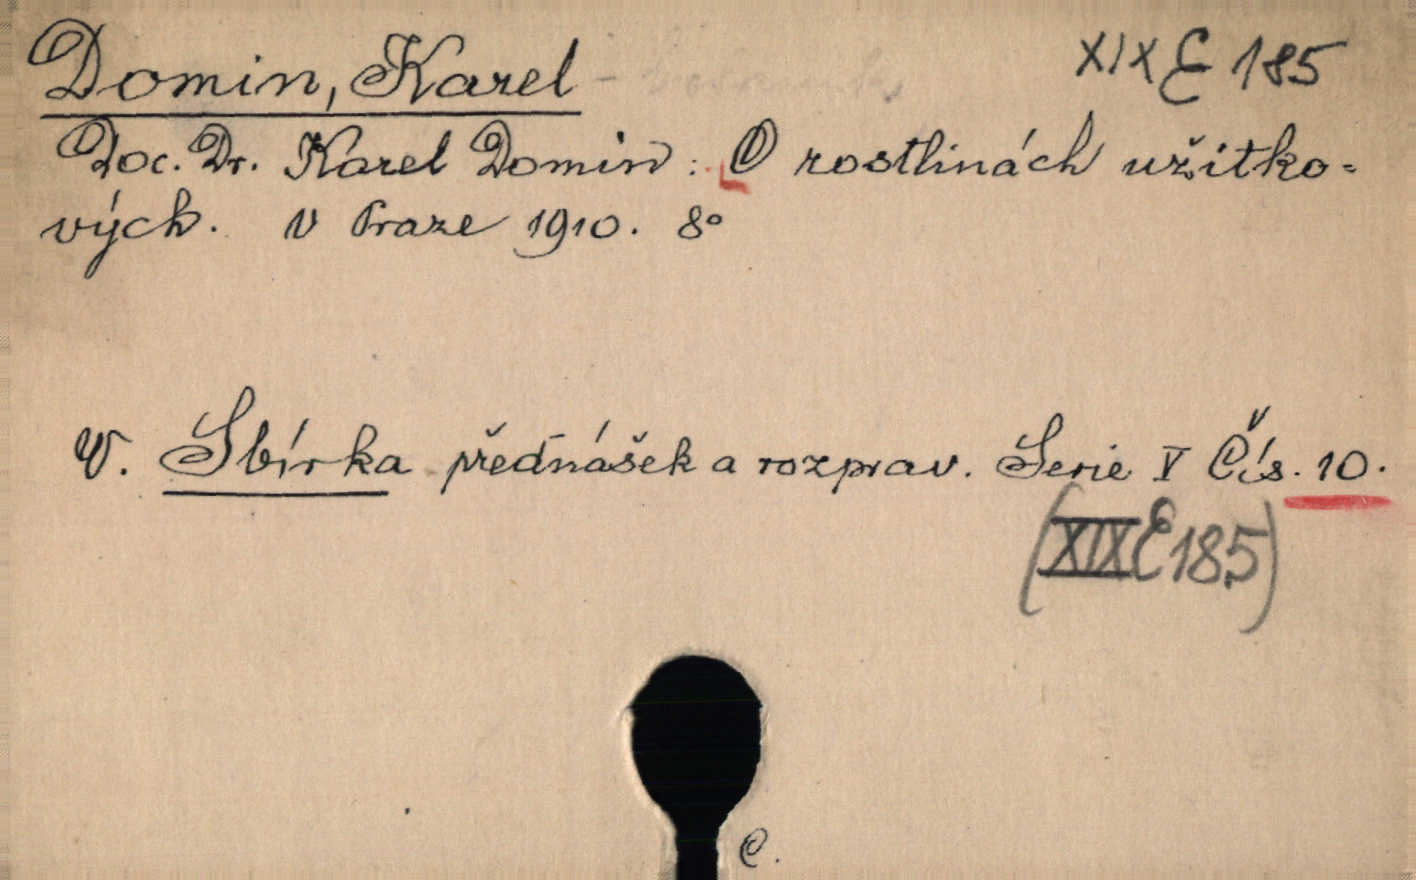 Domin, Karel XIX E 185
Doc. Dr. Karel Domin: O rostlinách užitko-
vých. V Praze 1910. 8°
V. Sbírka přednášek a rozprav. Serie V Čís. 10.
(XIX E 185)
C.